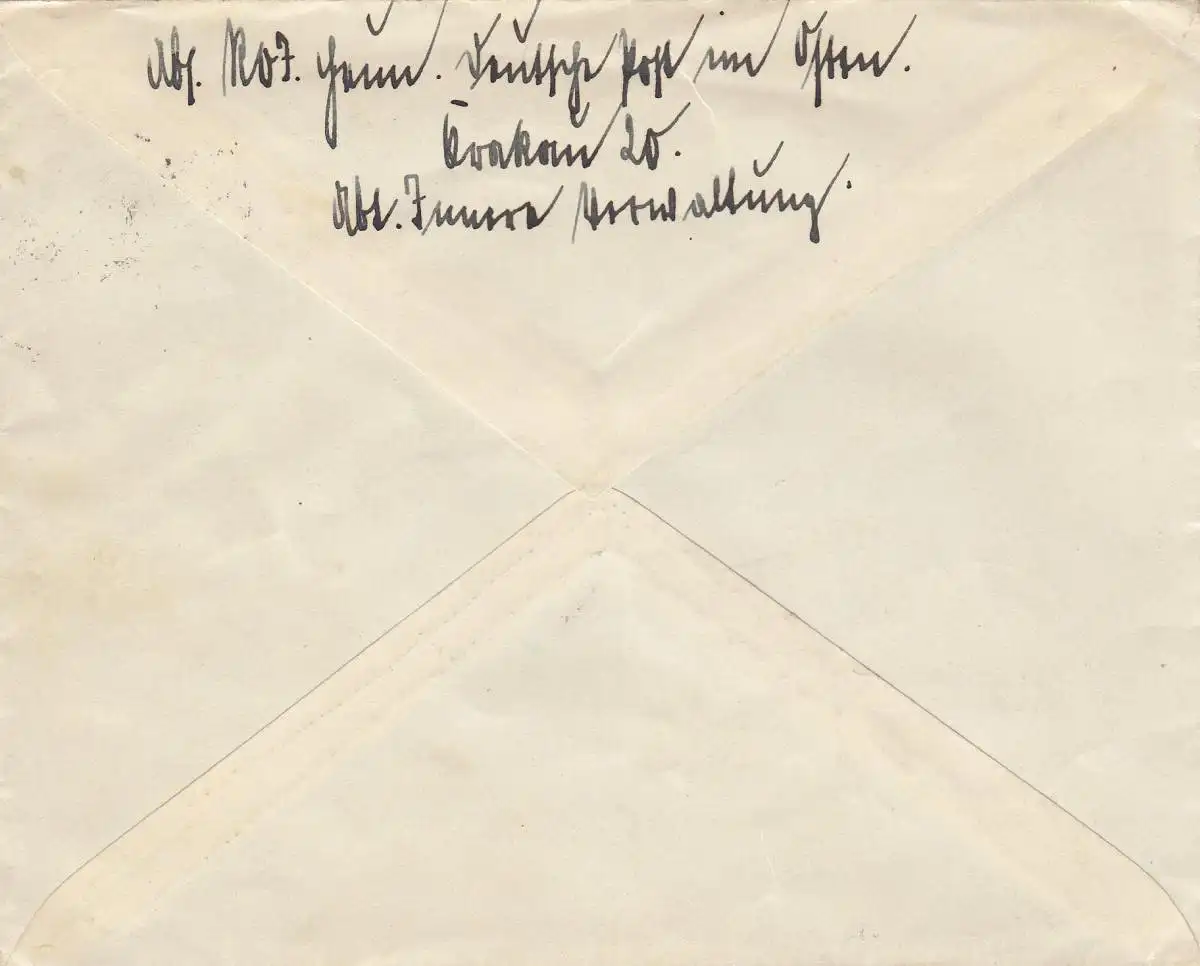 Abs. ROJ. Henn. Deutsche Post im Osten.
Krakau 20.
Abt. Innere Verwaltung.